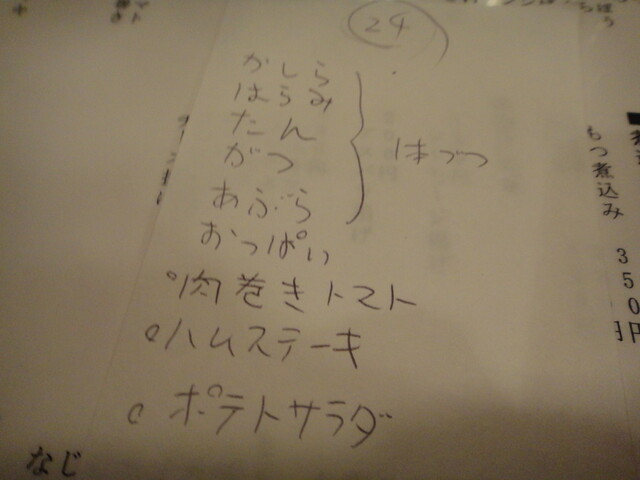 24
かしら
はらみ
たん
がつ
あぶら
はづつ
おっぱい
肉巻きトマト
ハムステーキ
ポテトサラダ
もつ煮込み
350円
なじ